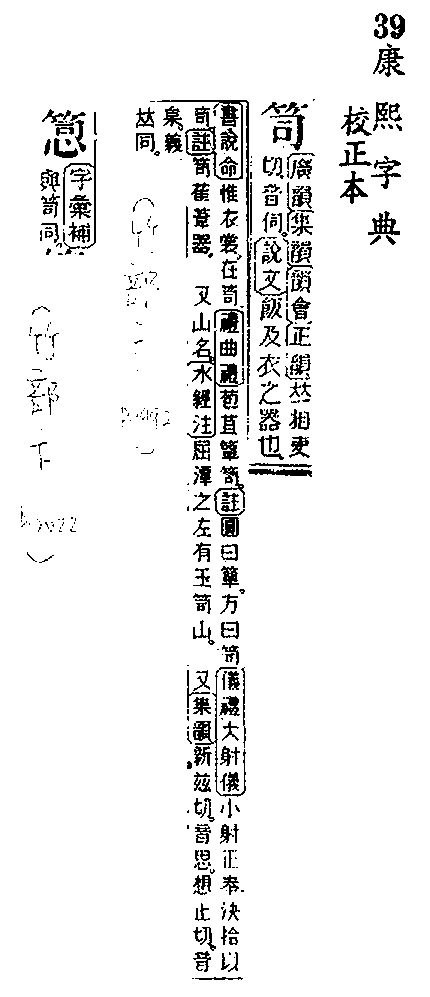 39
康熙字典
校正本
笥
廣韻集韻韻會正韻𠀤相吏
切音伺說文飯及衣之器也
書說命惟衣裳在笥禮曲禮苞苴簞笥註圓曰簞方曰笥儀禮大射儀小射正奉決拾以
笥註笥萑葦器 又山名水經注屈潭之左有玉笥山 又集韻新兹切音思想止切音
枲義
𠀤同
(竹部
)
𥰰
字彙補
與笥同
(竹部下
)